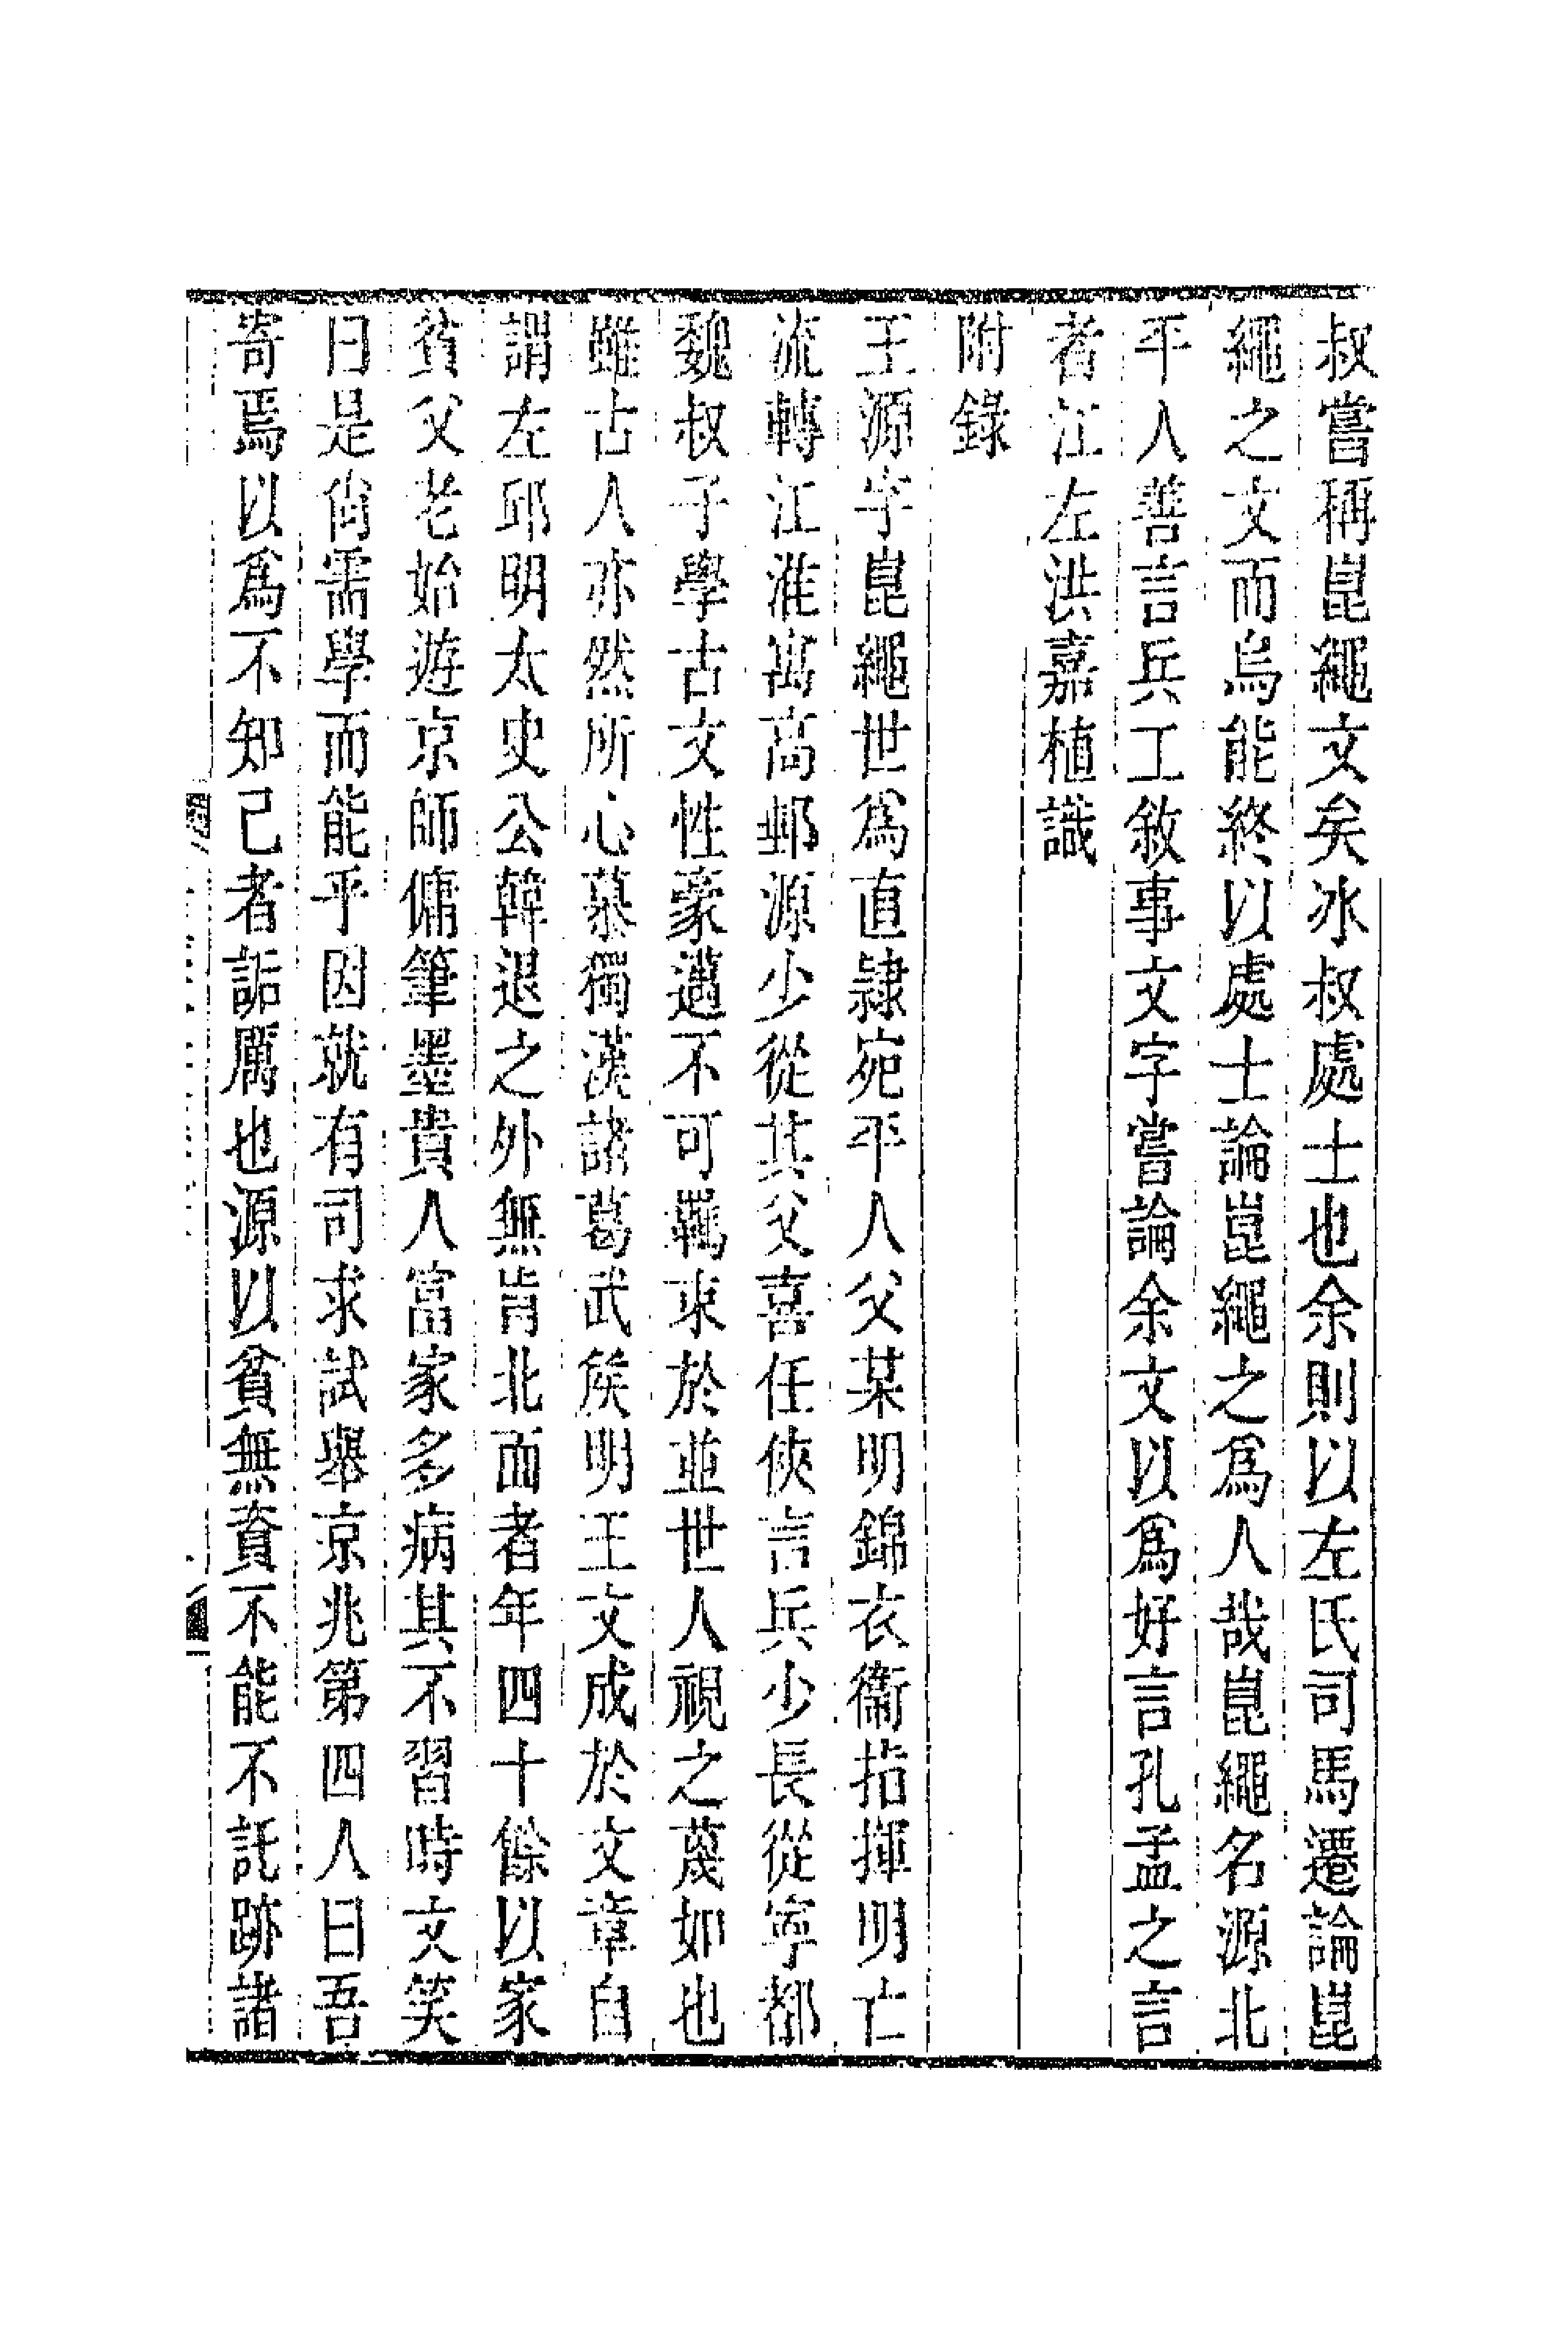 叔嘗稱崑繩文矣冰叔處士也余則以左氏司馬遷論崑
繩之文而烏能終以處士論崑繩之爲人哉崑繩名源北
平人善言兵工敘事文字嘗論余文以爲好言孔孟之言
者江左洪嘉植識
附錄
王源字崑繩世爲直隸宛平人父某明錦衣衞指揮明亡
流轉江淮寓高郵源少從其父喜任俠言兵少長從寧都
魏叔子學古文性豪邁不可羈束於並世人視之蔑如也
雖古人亦然所心慕獨漢諸葛武矦明王文成於文章自
謂左邱明太史公韓退之外無肯北面者年四十餘以家
貧父老始遊京師傭筆墨貴人富家多病其不習時文笑
曰是尙需學而能乎因就有司求試舉京兆第四人曰吾
寄焉以爲不知己者詬厲也源以貧無資不能不託跡諸